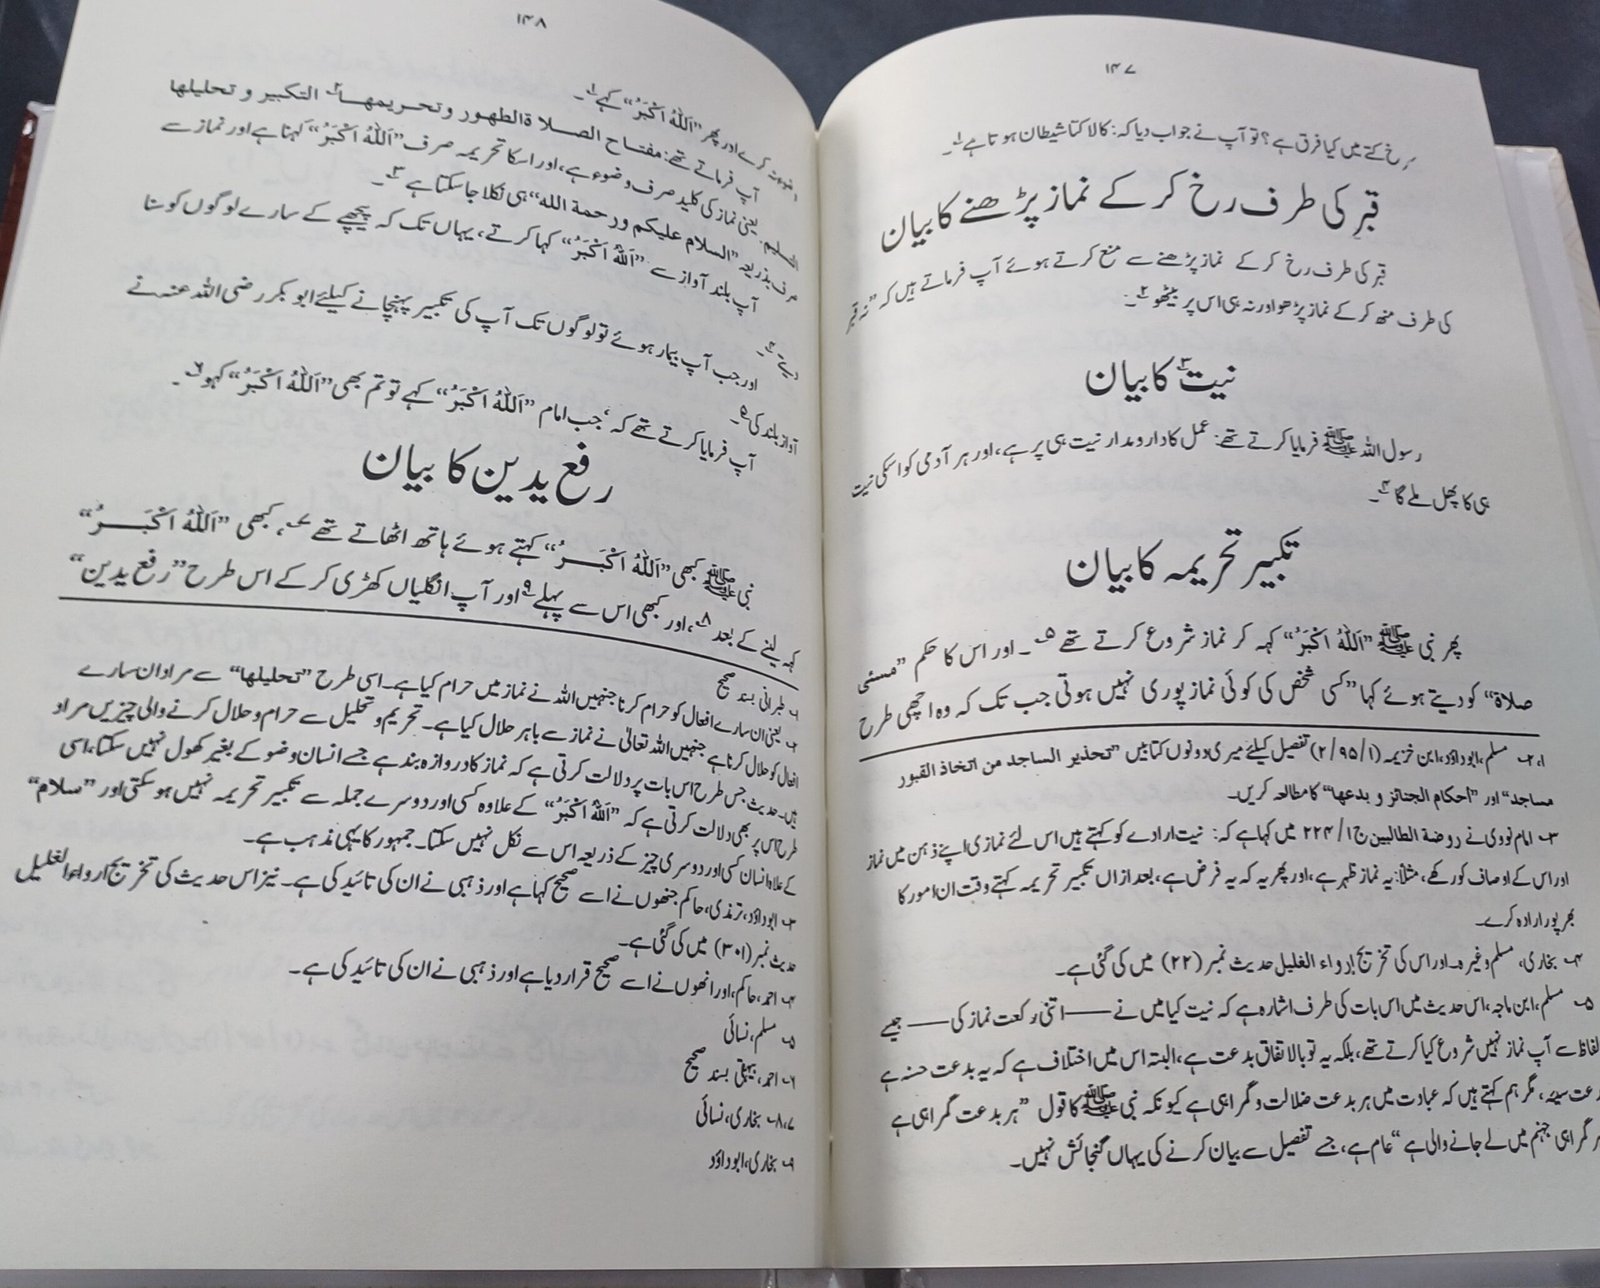 ۱۴۷
سرخ کتے میں کیا فرق ہے؟ تو آپ نے جواب دیا کہ: کالا کتا شیطان ہوتا ہے۱۔
قبر کی طرف رخ کر کے نماز پڑھنے کا بیان
قبر کی طرف رخ کر کے نماز پڑھنے سے منع کرتے ہوئے آپ فرماتے ہیں کہ ”نہ قبر
کی طرف منھ کر کے نماز پڑھو اور نہ ہی اس پر بیٹھو۲۔
نیت۳ کا بیان
رسول اللہ ﷺ فرمایا کرتے تھے: عمل کا دارومدار نیت ہی پر ہے، اور ہر آدمی کو اسکی نیت
ہی کا پھل ملے گا۴۔
تکبیر تحریمہ کا بیان
پھر نبی ﷺ ”اَللّٰہُ اَکْبَرُ“ کہہ کر نماز شروع کرتے تھے۵۔ اور اس کا حکم ”مسئی
صلاۃ“ کو دیتے ہوئے کہا ”کسی شخص کی کوئی نماز پوری نہیں ہوتی جب تک کہ وہ اچھی طرح
۱،۲۔ مسلم، ابوداؤد، ابن خزیمہ (۱/۹۵/۲) تفصیل کیلئے میری دونوں کتابیں ”تحذیر الساجد من اتخاذ القبور
مساجد“ اور ”احکام الجنائز و بدعھا“ کا مطالعہ کریں۔
۳۔ امام نووی نے روضة الطالبین ج۱/۲۲۴ میں کہا ہے کہ: نیت ارادے کو کہتے ہیں اس لئے نمازی اپنے ذہن میں نماز
اور اس کے اوصاف کو رکھے، مثلاً: یہ نماز ظہر ہے، اور پھر یہ کہ یہ فرض ہے، بعد ازاں تکبیر تحریمہ کہتے وقت ان امور کا
بھرپور ارادہ کرے۔
۴۔ بخاری، مسلم وغیرہ۔ اور اس کی تخریج إرواء الغلیل حدیث نمبر (۲۲) میں کی گئی ہے۔
۵۔ مسلم، ابن ماجہ، اس حدیث میں اس بات کی طرف اشارہ ہے کہ نیت کیا میں نے —— اتنی رکعت نماز کی —— جیسے
الفاظ سے آپ نماز نہیں شروع کیا کرتے تھے، بلکہ یہ تو بالاتفاق بدعت ہے، البتہ اس میں اختلاف ہے کہ یہ بدعت حسنہ ہے
بدعت سیئہ، مگر ہم کہتے ہیں کہ عبادت میں ہر بدعت ضلالت و گمراہی ہے کیونکہ نبی ﷺ کا قول ”ہر بدعت گمراہی ہے
ہر گمراہی جہنم میں لے جانے والی ہے“ عام ہے، جسے تفصیل سے بیان کرنے کی یہاں گنجائش نہیں۔
۱۴۸
کرے اور پھر ”اَللّٰہُ اَکْبَرُ“ کہے۱۔
آپ فرماتے تھے: مفتاح الصلاة الطهور وتحریمها۲ التکبیر و تحلیلها
التسلیم. یعنی نماز کی کلید صرف وضوء ہے، اور اسکا تحریمہ صرف ”اَللّٰہُ اَکْبَرُ“ کہنا ہے اور نماز سے
صرف بذریعہ ”السلام علیکم ورحمة اللہ“ ہی نکلا جا سکتا ہے۳۔
آپ بلند آواز سے ”اَللّٰہُ اَکْبَرُ“ کہا کرتے، یہاں تک کہ پیچھے کے سارے لوگوں کو سنا
دیتے۴۔
اور جب آپ بیمار ہوئے تو لوگوں تک آپ کی تکبیر پہنچانے کیلئے ابوبکر رضی اللہ عنہ نے
آواز بلند کی۵۔
آپ فرمایا کرتے تھے کہ ‘جب امام ”اَللّٰہُ اَکْبَرُ“ کہے تو تم بھی ”اَللّٰہُ اَکْبَرُ“ کہو۶۔
رفع یدین کا بیان
نبی ﷺ کبھی ”اَللّٰہُ اَکْبَرُ“ کہتے ہوئے ہاتھ اٹھاتے تھے۷، کبھی ”اَللّٰہُ اَکْبَرُ“
کہہ لینے کے بعد۸، اور کبھی اس سے پہلے۹ اور آپ انگلیاں کھڑی کر کے اس طرح ”رفع یدین“
۱۔ طبرانی بسند صحیح
۲۔ یعنی ان سارے افعال کو حرام کرنا جنہیں اللہ نے نماز میں حرام کیا ہے۔ اسی طرح ”تحلیلھا“ سے مراد ان سارے
افعال کو حلال کرنا ہے جنہیں اللہ تعالیٰ نے نماز سے باہر حلال کیا ہے۔ تحریم و تحلیل سے حرام و حلال کرنے والی چیزیں مراد
ہیں۔ حدیث جس طرح اس بات پر دلالت کرتی ہے کہ نماز کا دروازہ بند ہے جسے انسان وضو کے بغیر کھول نہیں سکتا، اسی
طرح اس پر بھی دلالت کرتی ہے کہ ”اَللّٰہُ اَکْبَرُ“ کے علاوہ کسی اور دوسرے جملہ سے تکبیر تحریمہ نہیں ہو سکتی اور ”سلام“
کے علاوہ انسان کسی اور دوسری چیز کے ذریعہ اس سے نکل نہیں سکتا۔ جمہور کا یہی مذہب ہے۔
۳۔ ابوداؤد، ترمذی، حاکم جنھوں نے اسے صحیح کہا ہے اور ذہبی نے ان کی تائید کی ہے۔ نیز اس حدیث کی تخریج ارواء الغلیل
حدیث نمبر (۳۰۱) میں کی گئی ہے۔
۴۔ احمد، حاکم، اور انھوں نے اسے صحیح قرار دیا ہے اور ذہبی نے ان کی تائید کی ہے۔
۵۔ مسلم، نسائی
۶۔ احمد، بیہقی بسند صحیح
۷،۸۔ بخاری، نسائی
۹۔ بخاری، ابوداؤد